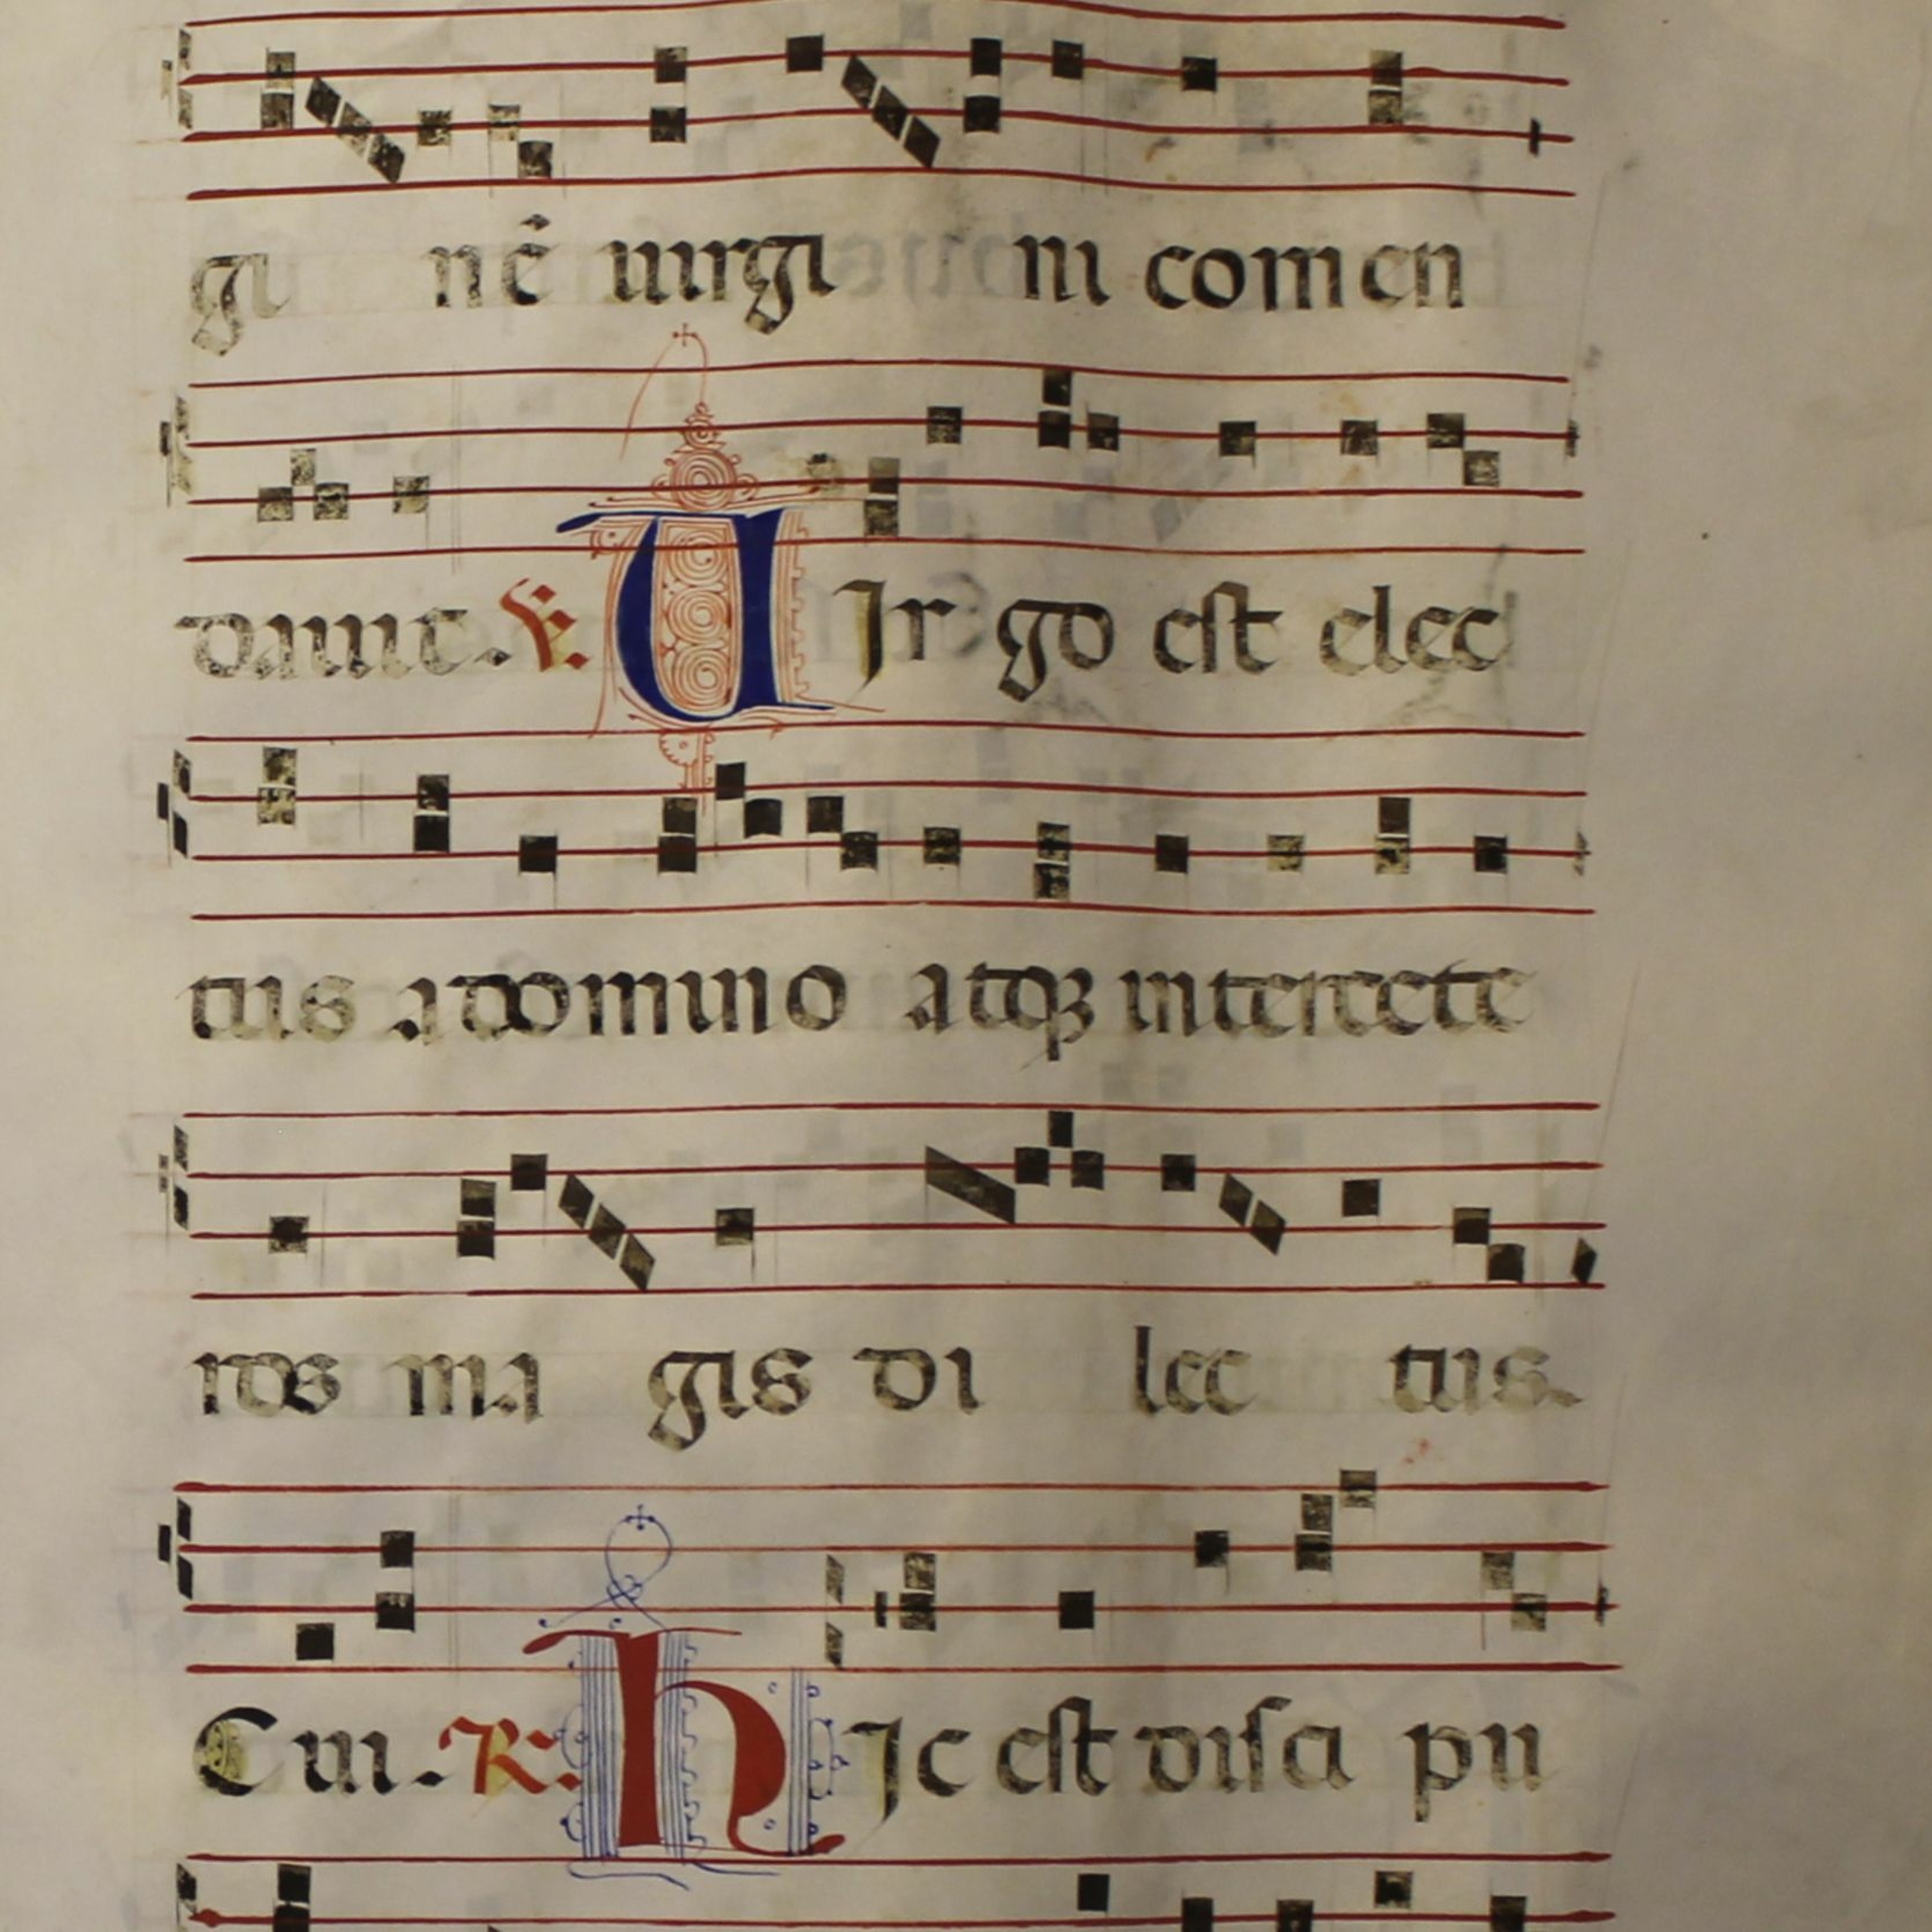 gi nē uirgi ni comen
dauit. ℣. UIr go est elec
tus a domino atqȝ inter cete
ros ma gis di lec tus.
Cui. R. hIc est disci pu